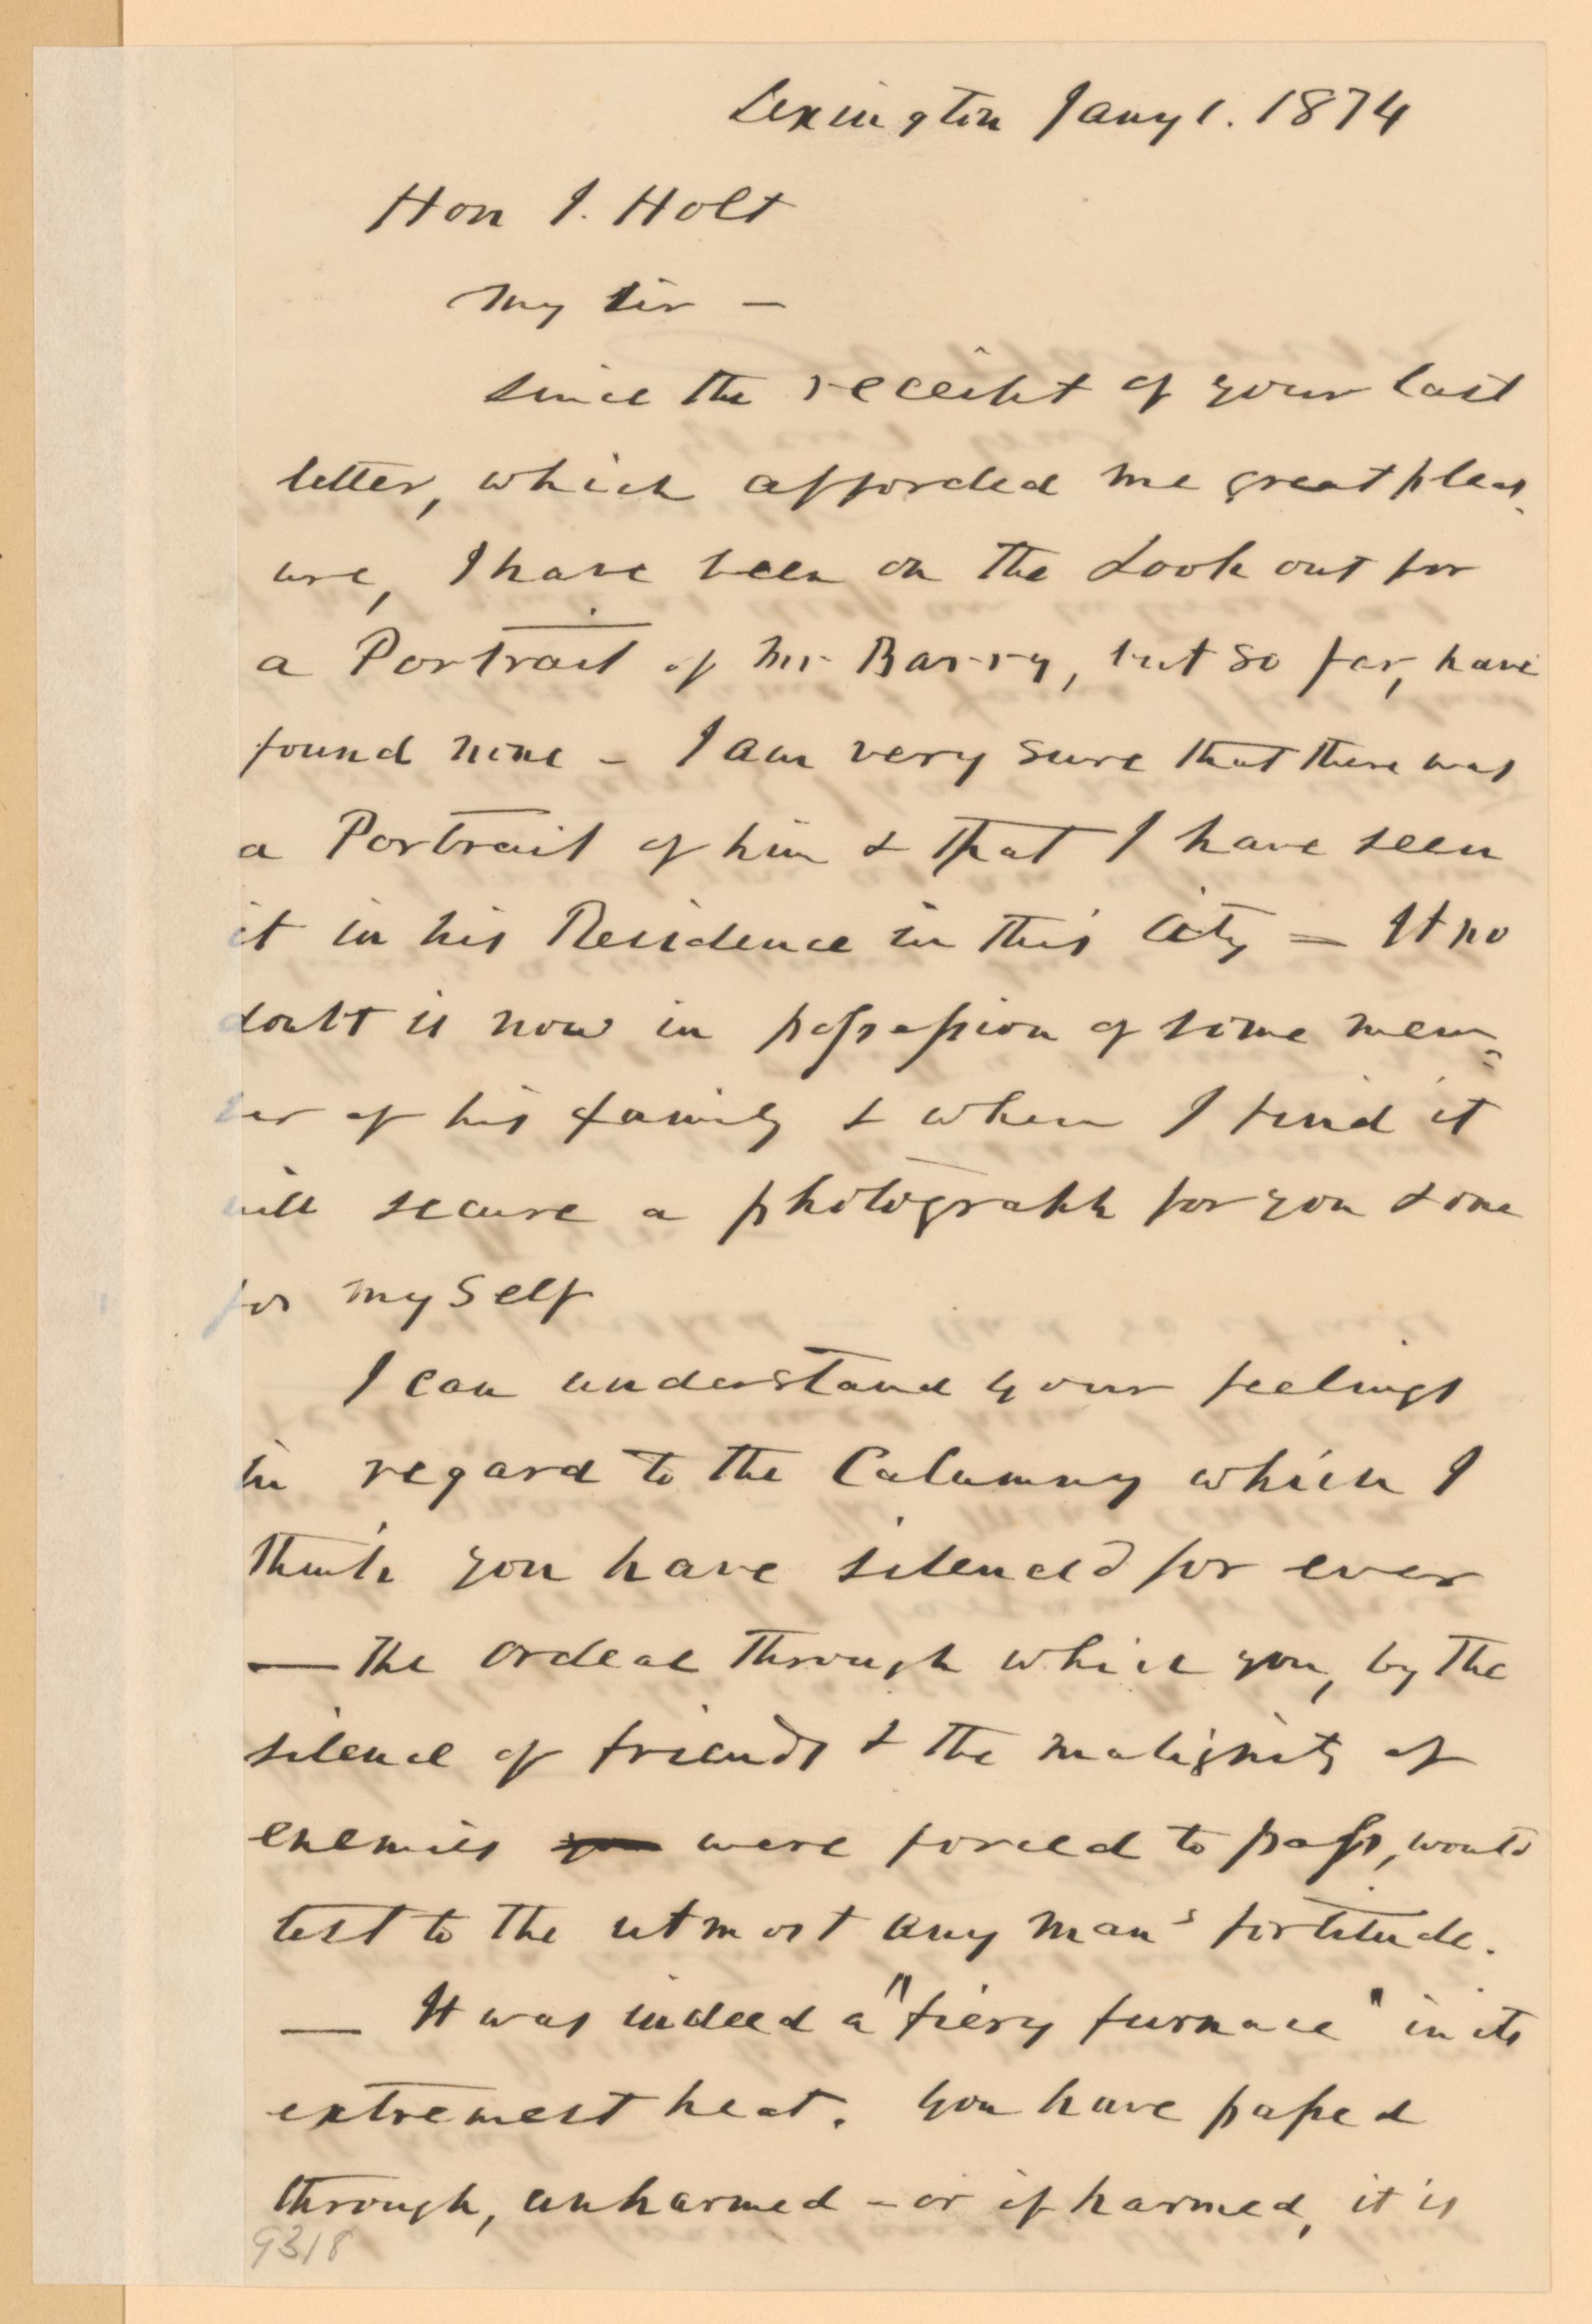 Lexington Jany 1. 1874
Hon J. Holt
My Sir —
Since the receipt of your last
letter, which afforded me great pleas
ure, I have been on the Look out for
a Portrait of Mr Barry, but so far, have
found none - I am very sure that there was
a Portrait of him & that I have seen
it in his Residence in this City = It no
doubt is now in possession of some mem=
ber of his family & when I find it
will secure a photograph for you & one
for my Self
I can understand your feelings
in regard to the Calumny which I
think you have silenced for ever
— The ordeal through which you, by the
silence of friends & the malignity of
enemies you were forced to pass, would
test to the utmost any man's fortitude.
— It was indeed a "fiery furnace" in its
extremest heat. You have passed
through, unharmed - or if harmed, it is
9318